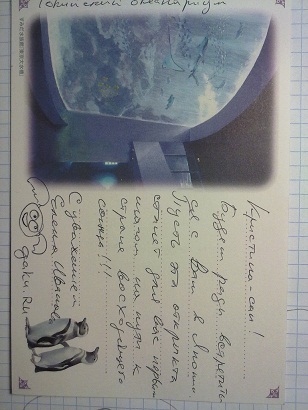 Токийский океанариум
Кристина-сан!
Будем рады встретить
ся с Вами в Японии
Пусть эта открытка
станет для вас первым
шагом на пути к
стране восходящего
солнца!!!
С уважением
Елена Иванова
gaku.Ru